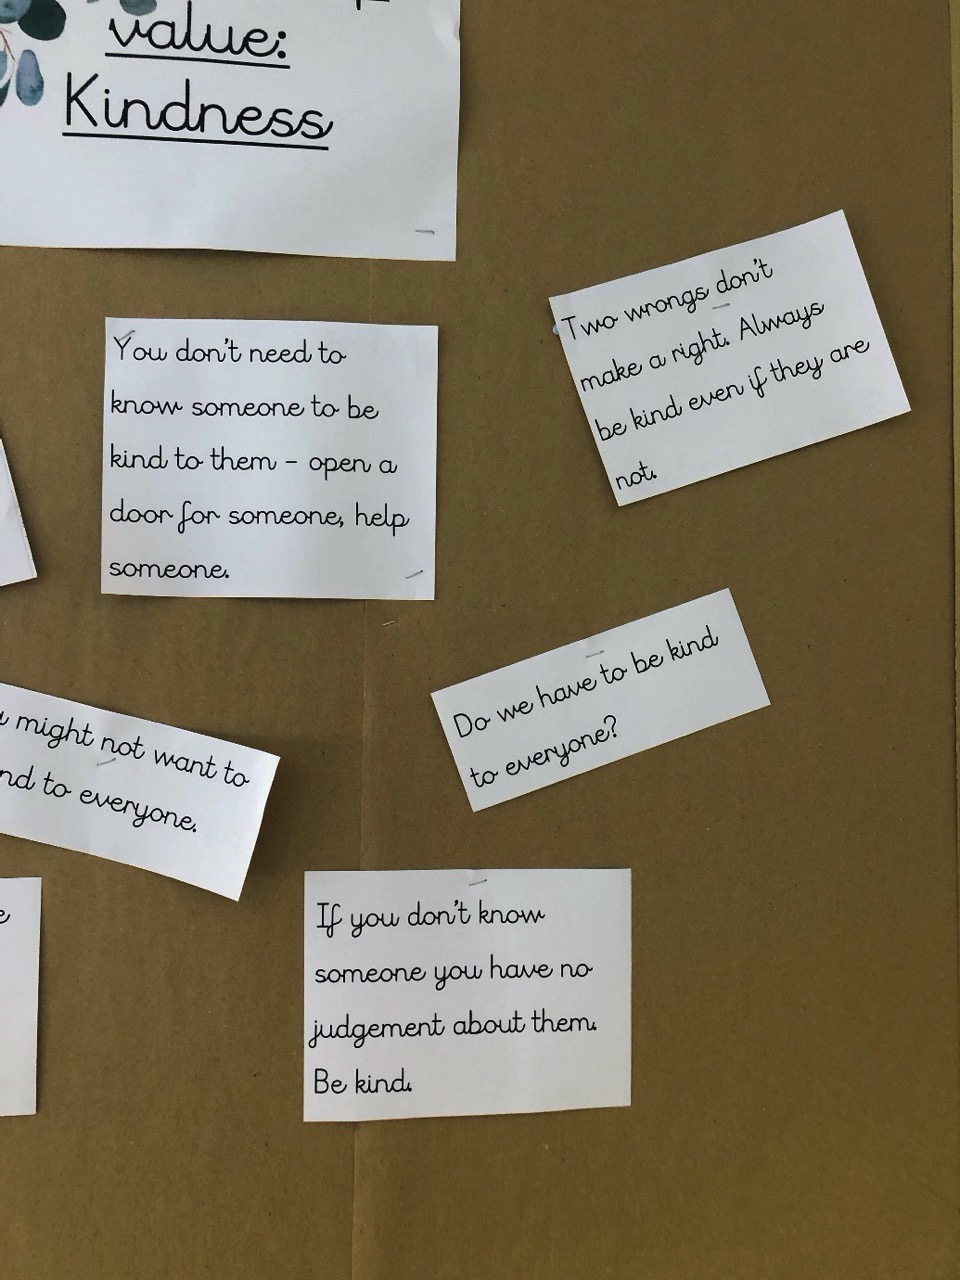 value:
Kindness
You don't need to
know someone to be
kind to them - open a
door for someone, help
someone.
Two wrongs don't
make a right. Always
be kind even if they are
not.
Do we have to be kind
to everyone?
might not want to
to everyone.
If you don't know
someone you have no
judgement about them.
Be kind.